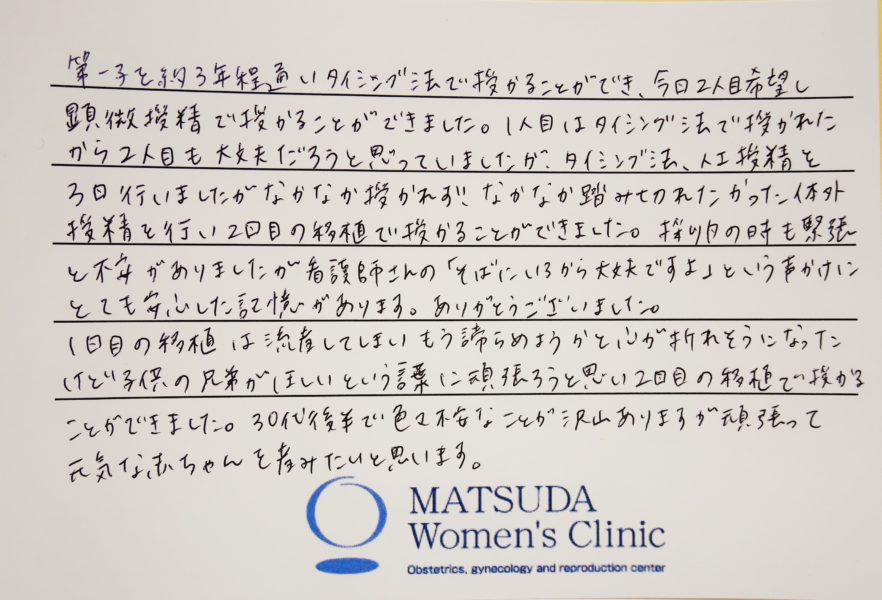 第一子を約3年程通いタイミング法で授かることができ、今回2人目希望し
顕微授精で授かることができました。1人目はタイミング法で授かれた
から2人目も大丈夫だろうと思っていましたが、タイミング法、人工授精を
3回行いましたがなかなか授かれず!なかなか踏み切れたかった体外
授精を行い2回目の移植で授かることができました。採卵の時も緊張
と不安がありましたが看護師さんの「そばにいるから大丈夫ですよ」という声かけに
とても安心した記憶があります。ありがとうございました。
1回目の移植は流産してしまいもう諦らめようかと心が折れそうになった
けど子供の兄弟がほしいという言葉に頑張ろうと思い2回目の移植で授かる
ことができました。30代後半で色々不安なことが沢山ありますが頑張って
元気な赤ちゃんを産みたいと思います。
MATSUDA
Women's Clinic
Obstetrics, gynecology and reproduction center